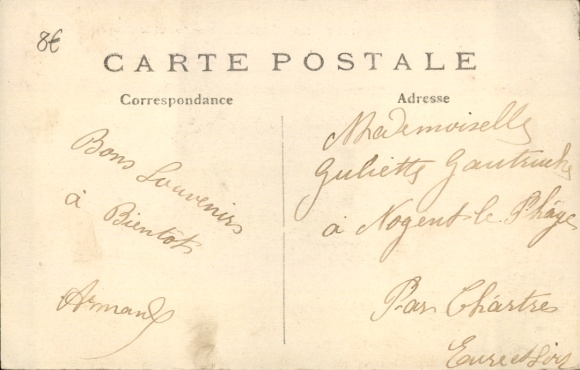 8€
CARTE POSTALE
Correspondance
Bons Souvenirs
à Bientôt
Armand
Adresse
Mademoiselle
Guliette Gautruche
à Nogent-le-Phaye
Par Chartres
Eure et Loir